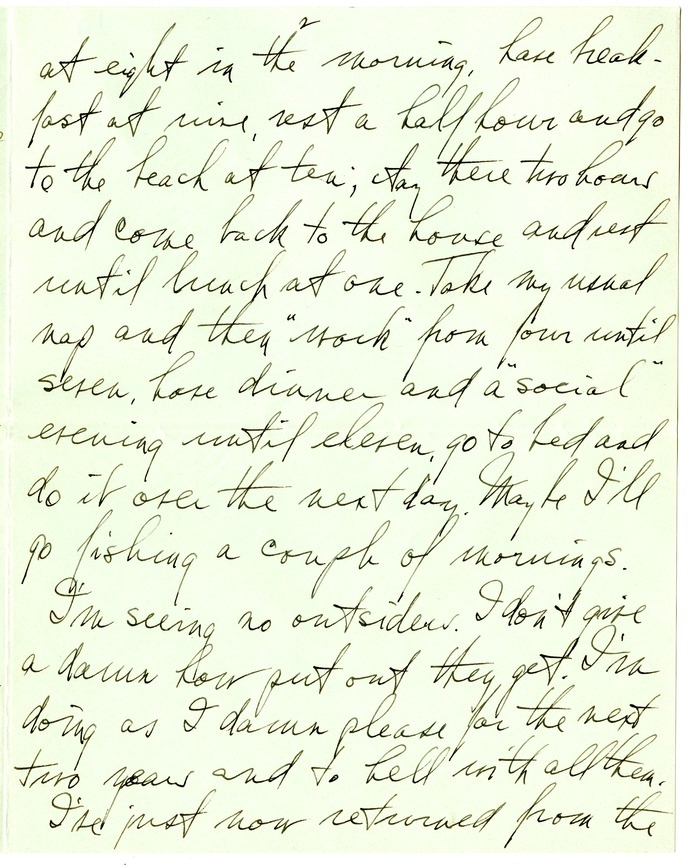 2
at eight in the morning, have break-
fast at nine, rest a half hour and go
to the beach at ten; stay there two hours
and come back to the house and rest
until lunch at one. Take my usual
nap and then "work" from four until
seven, have dinner and a "social"
evening until eleven, go to bed and
do it over the next day. Maybe I'll
go fishing a couple of mornings.
I'm seeing no outsiders. I don't give
a damn how put out they get. I'm
doing as I damn please for the next
two years and to hell with all them.
I've just now returned from the